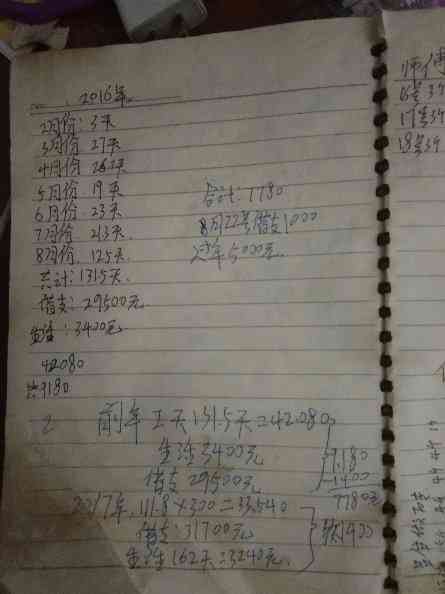 2016年
2月份: 3天
3月份 27天
4月份 26.2天
5月份 19天
6月份 23天
7月份 21.3天
8月份 12.5天
共计: 131.5天
借支: 29500元
生活: 3400元
42080
9180
合计: 7780
8月22号借支1000
过年6000元
前年工天131.5天=42.080
生活3400元
借支29500元
9.180
1400
7780元
2017年, 111.8×300=33.540
借支: 31700元
生活162天=3240元
欠1400
师傅
16号
17号
18号